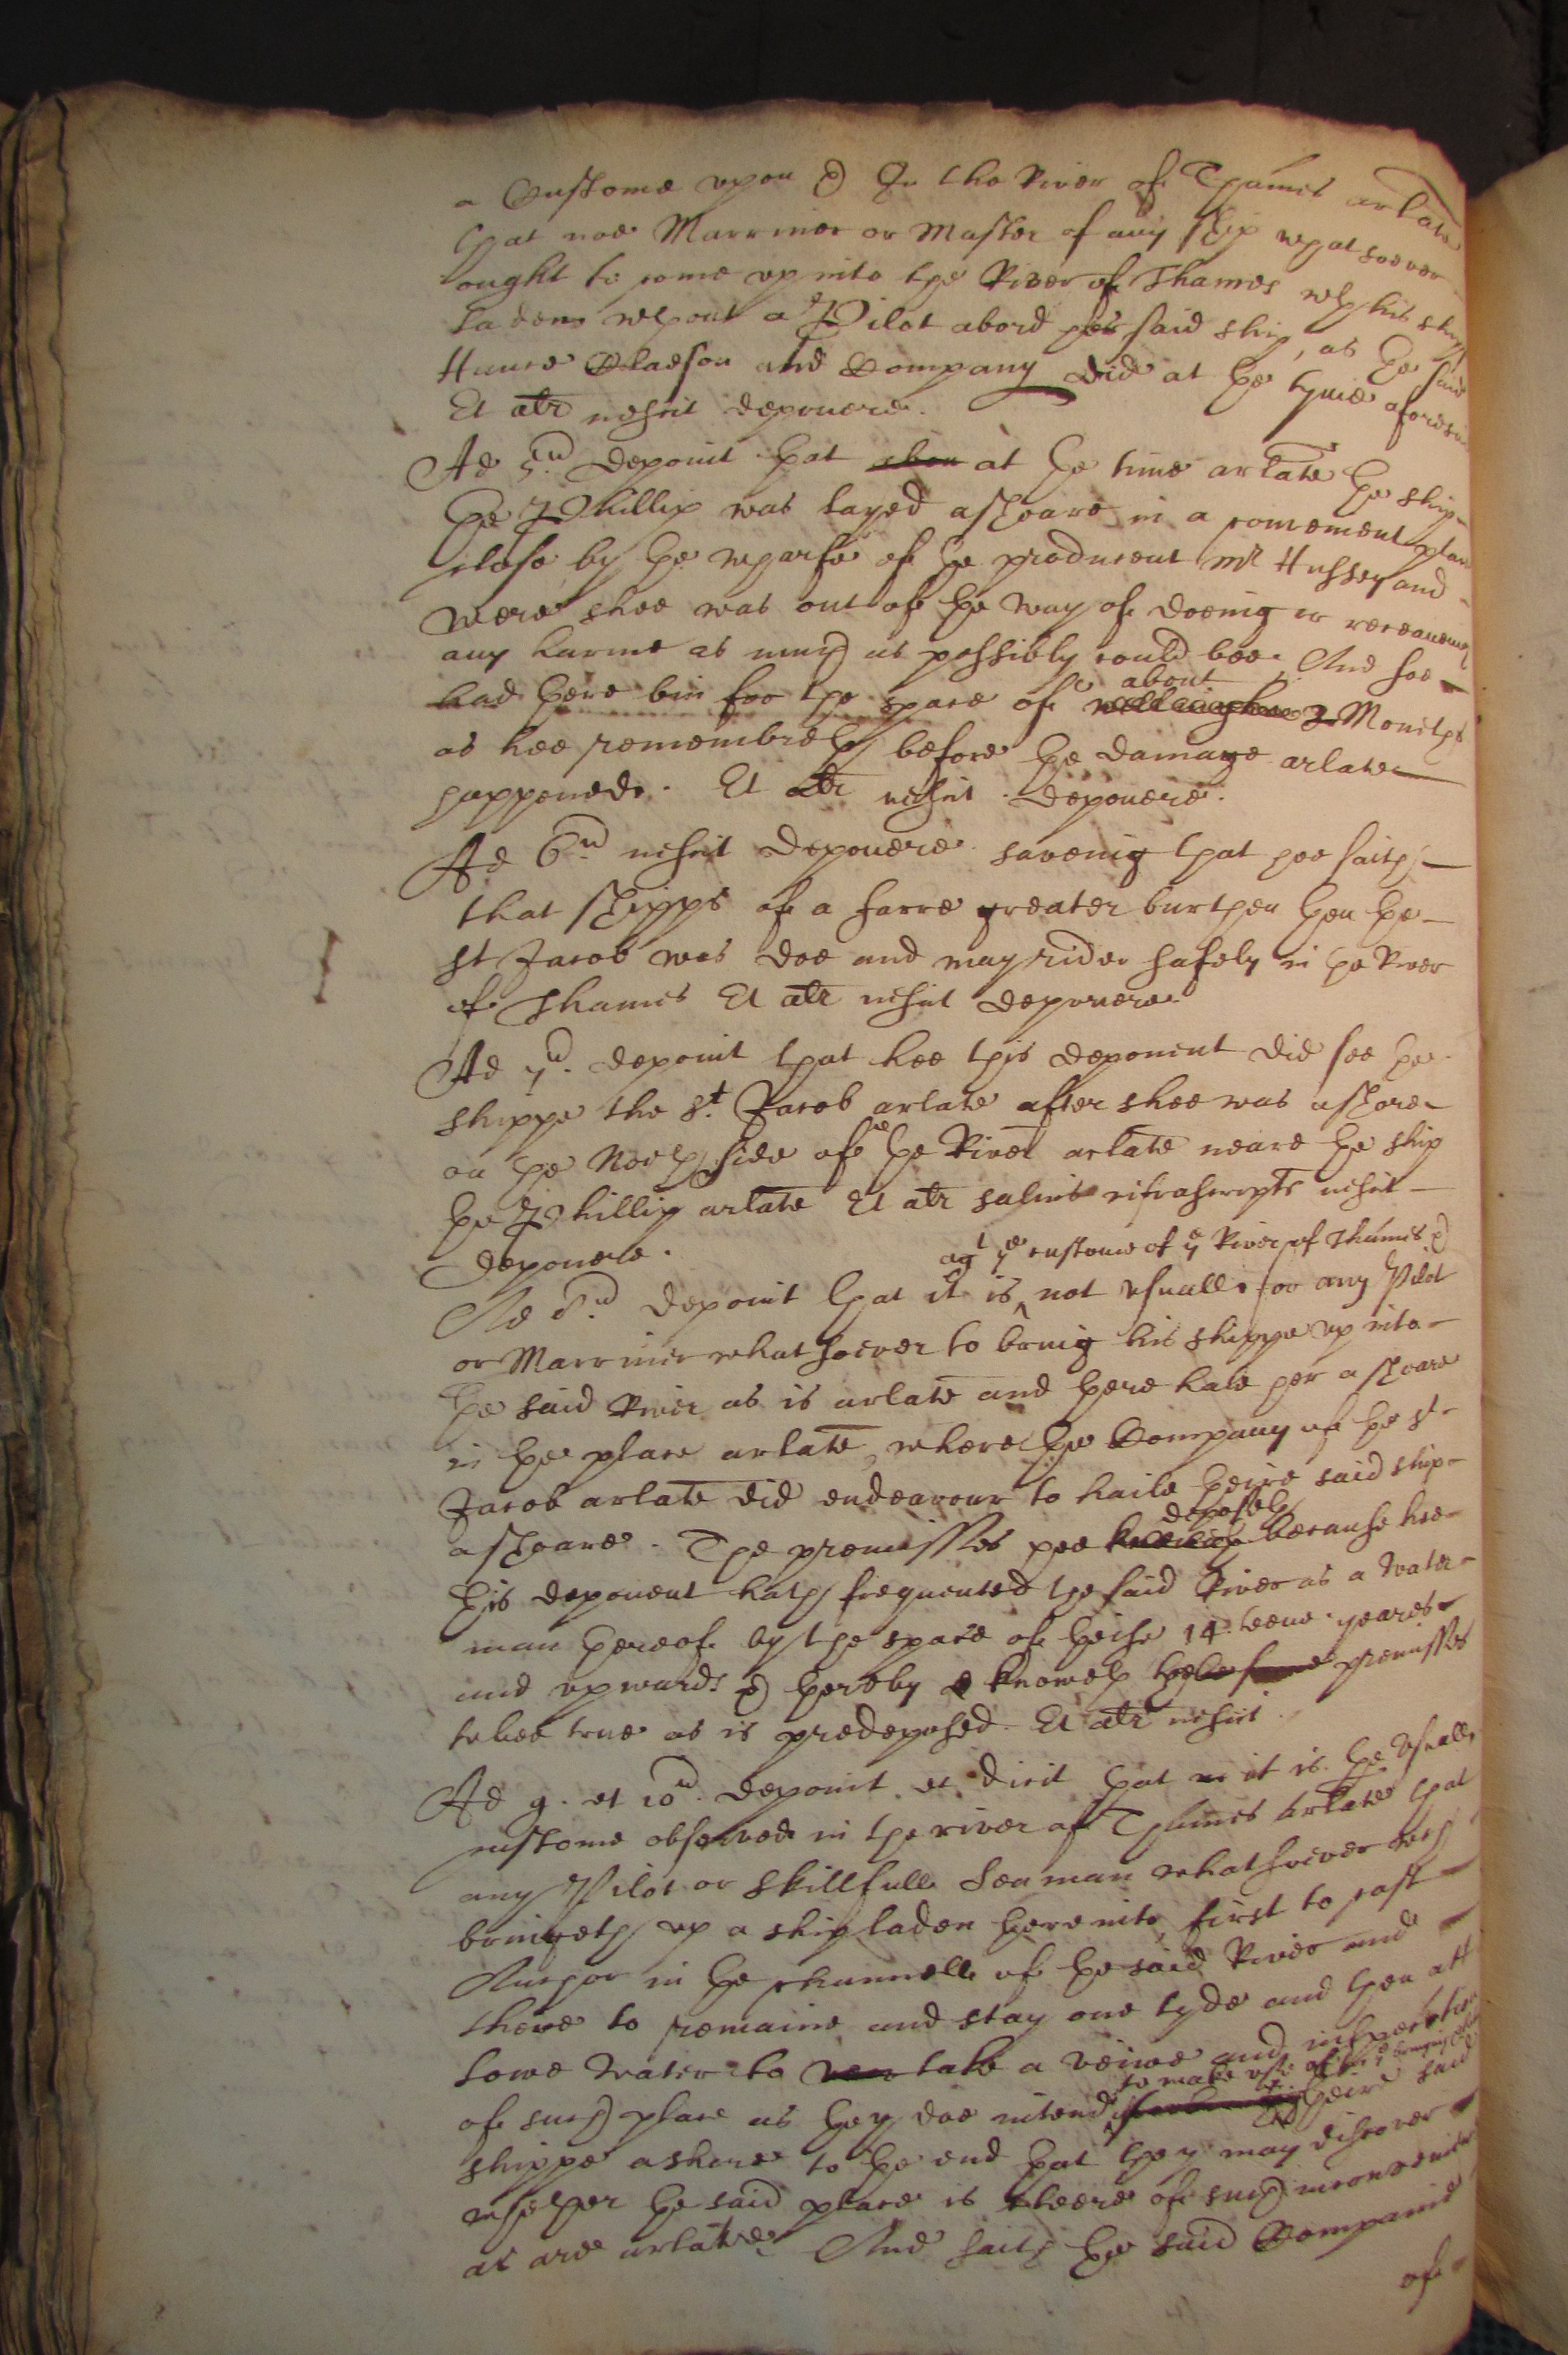 a Custome vpon & In the River of Thames arlate
that noe Marriner or Master of any ship whatsoever
ought to come vp into the River of Thames wth his ship
laden wthout a Pilot abord her said ship, as the said
Hance Claeson and Company did at the tyme aforesaid
Et alr nescit deponere.
Ad 5.um deponit that at the time arlate the ship
the Phillip was layed ashoare in a convenient place
close by the wharfe of the producent mr Hussey and
were shee was out of the way of doeing or receaveing
any harme as much as possibly could bee. And soe
had there bin for the space of about 2 Moneths
as hee remembreth before the damage arlate
happened. Et alr nescit deponere.
Ad 6.um nescit deponere saveing that hee saith
that shipps of a farre greater burthen then the
St Jacob was doe and may rider safely in the River
of Thames Et alr nescit deponere
Ad 7.um deponit that hee this deponent did see the
shippe the St. Jacob arlate after shee was ashore
on the North side of the River arlate neare the ship
the Phillip arlate Et alr salvis infrascriptis nescit
deponere.
agt ye custome of ye River of Thames &
Ad 8.um deponit that it is not vsuall for any Pilot
or Marriner whatsoever to bring his shippe vp into
the said River as is arlate and there hale her ashoare
in the place arlate, where the Company of the St
Jacob arlate did endeavour to haile theire said ship
deposeth
ashoare. The premisses hee because hee
this deponent hath frequented the said River as a Water
man thereof by the space of theise 14 teene yeares
and vpwards & thereby knoweth premisses
to bee true as is predeposed. Et alr nescit.
Ad 9. et 10.um deponit et dicit that it is the vsuall
custome observed in the river of Thames arlate that
any Pilot or skillfull Seaman whatsoever wch
bringeth vp a ship laden thereinto, first to cast
Anchor in the channell of the said River and
there to remaine and stay one tyde and then att
lowe Water to take a veiwe and inspection
to make vse of
of such place as they doe intend theire said
shippe ashore to the end that they may discover
whether the said place is cleere of such inconveniences
as are arlate. And saith the said Companie
of